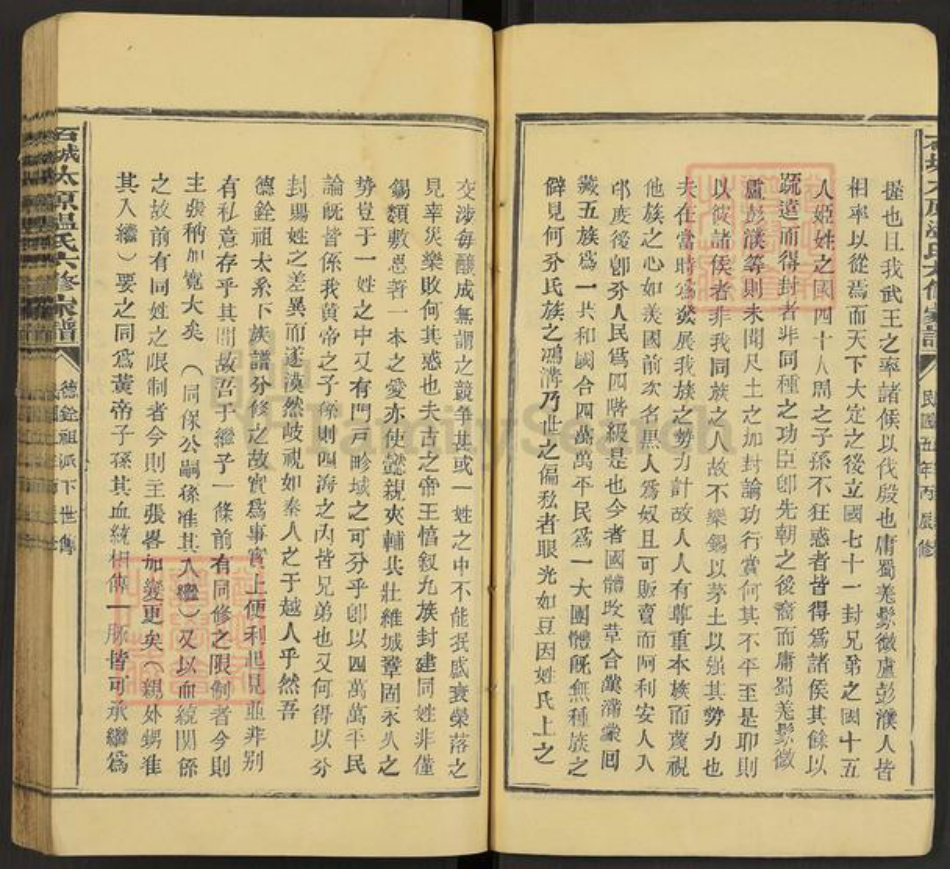 握也且我武王之率諸侯以伐殷也庸蜀羌髳微盧彭濮人皆
相率以從焉而天下大定之後立國七十一封兄弟之國十五
人姬姓之國四十人周之子孫不狂惑者皆得為諸侯其餘以
疏遠而得封者非同種之功臣卽先朝之後裔而庸蜀羌髳微
盧彭濮等則未聞尺土之加封論功行賞何其不平至是耶則
以從諸侯者非我同族之人故不樂錫以茅土以强其勢力也
夫在當時為發展我族之勢力計故人人有尊重本族而蔑視
他族之心如美國前次名黑人為奴且可販賣而阿利安人入
印度後卽分人民為四階級是也今者國體改革合漢滿蒙回
藏五族為一共和國合四萬萬平民為一大團體旣無種族之
僻見何分氏族之鴻溝乃世之偏私者眼光如豆因姓氏上之
民國五年丙辰修
石城太原溫氏六修宗譜
德銓祖派下世傳
交涉每釀成無謂之競爭甚或一姓之中不能泯盛衰榮落之
見幸災樂敗何其惑也夫古之帝王惇叙九族封建同姓非僅
錫類敷恩著一本之愛亦使懿親夾輔共壯維城鞏固永久之
勢豈于一姓之中又有門戸畛域之可分乎卽以四萬萬平民
論旣皆係我黃帝之子孫則四海之內皆兄弟也又何得以分
封賜姓之差異而遂漠然歧視如秦人之于越人乎然吾
德銓祖太系下族譜分修之故實為事實上便利起見並非别
有私意存乎其間故吾于繼子一條前有同修之限制者今則
主張稍加寬大矣(同係公嗣孫准其入繼)又以血統関係
之故前有同姓之限制者今則主張畧加變更矣(親外甥准
其入繼)要之同為黃帝子孫其血統相傳一脉皆可承繼為